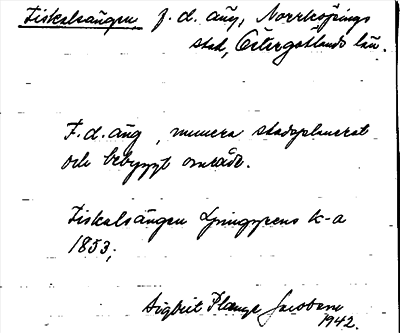 Fiskalsängen f. d. äng, Norrköpings
stad, Östergötlands län.
F. d. äng, numera stadsplanerat
och bebyggt område.
Fiskalsängen Ljunggrens k-a
1853;
Sigbrit Plænge Jacobson
1942.